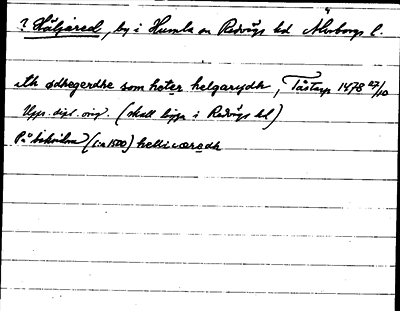 ? Häljared, by i Humla sn Redvägs hd Älvsborgs l.
ith ödhegerdhe som heter helgarydh, Tåstarp 1478 27/10
Upps. dipl. orig. (skall ligga i Redvägs hd)
På baksidan (c:a 1500) helliwæredh